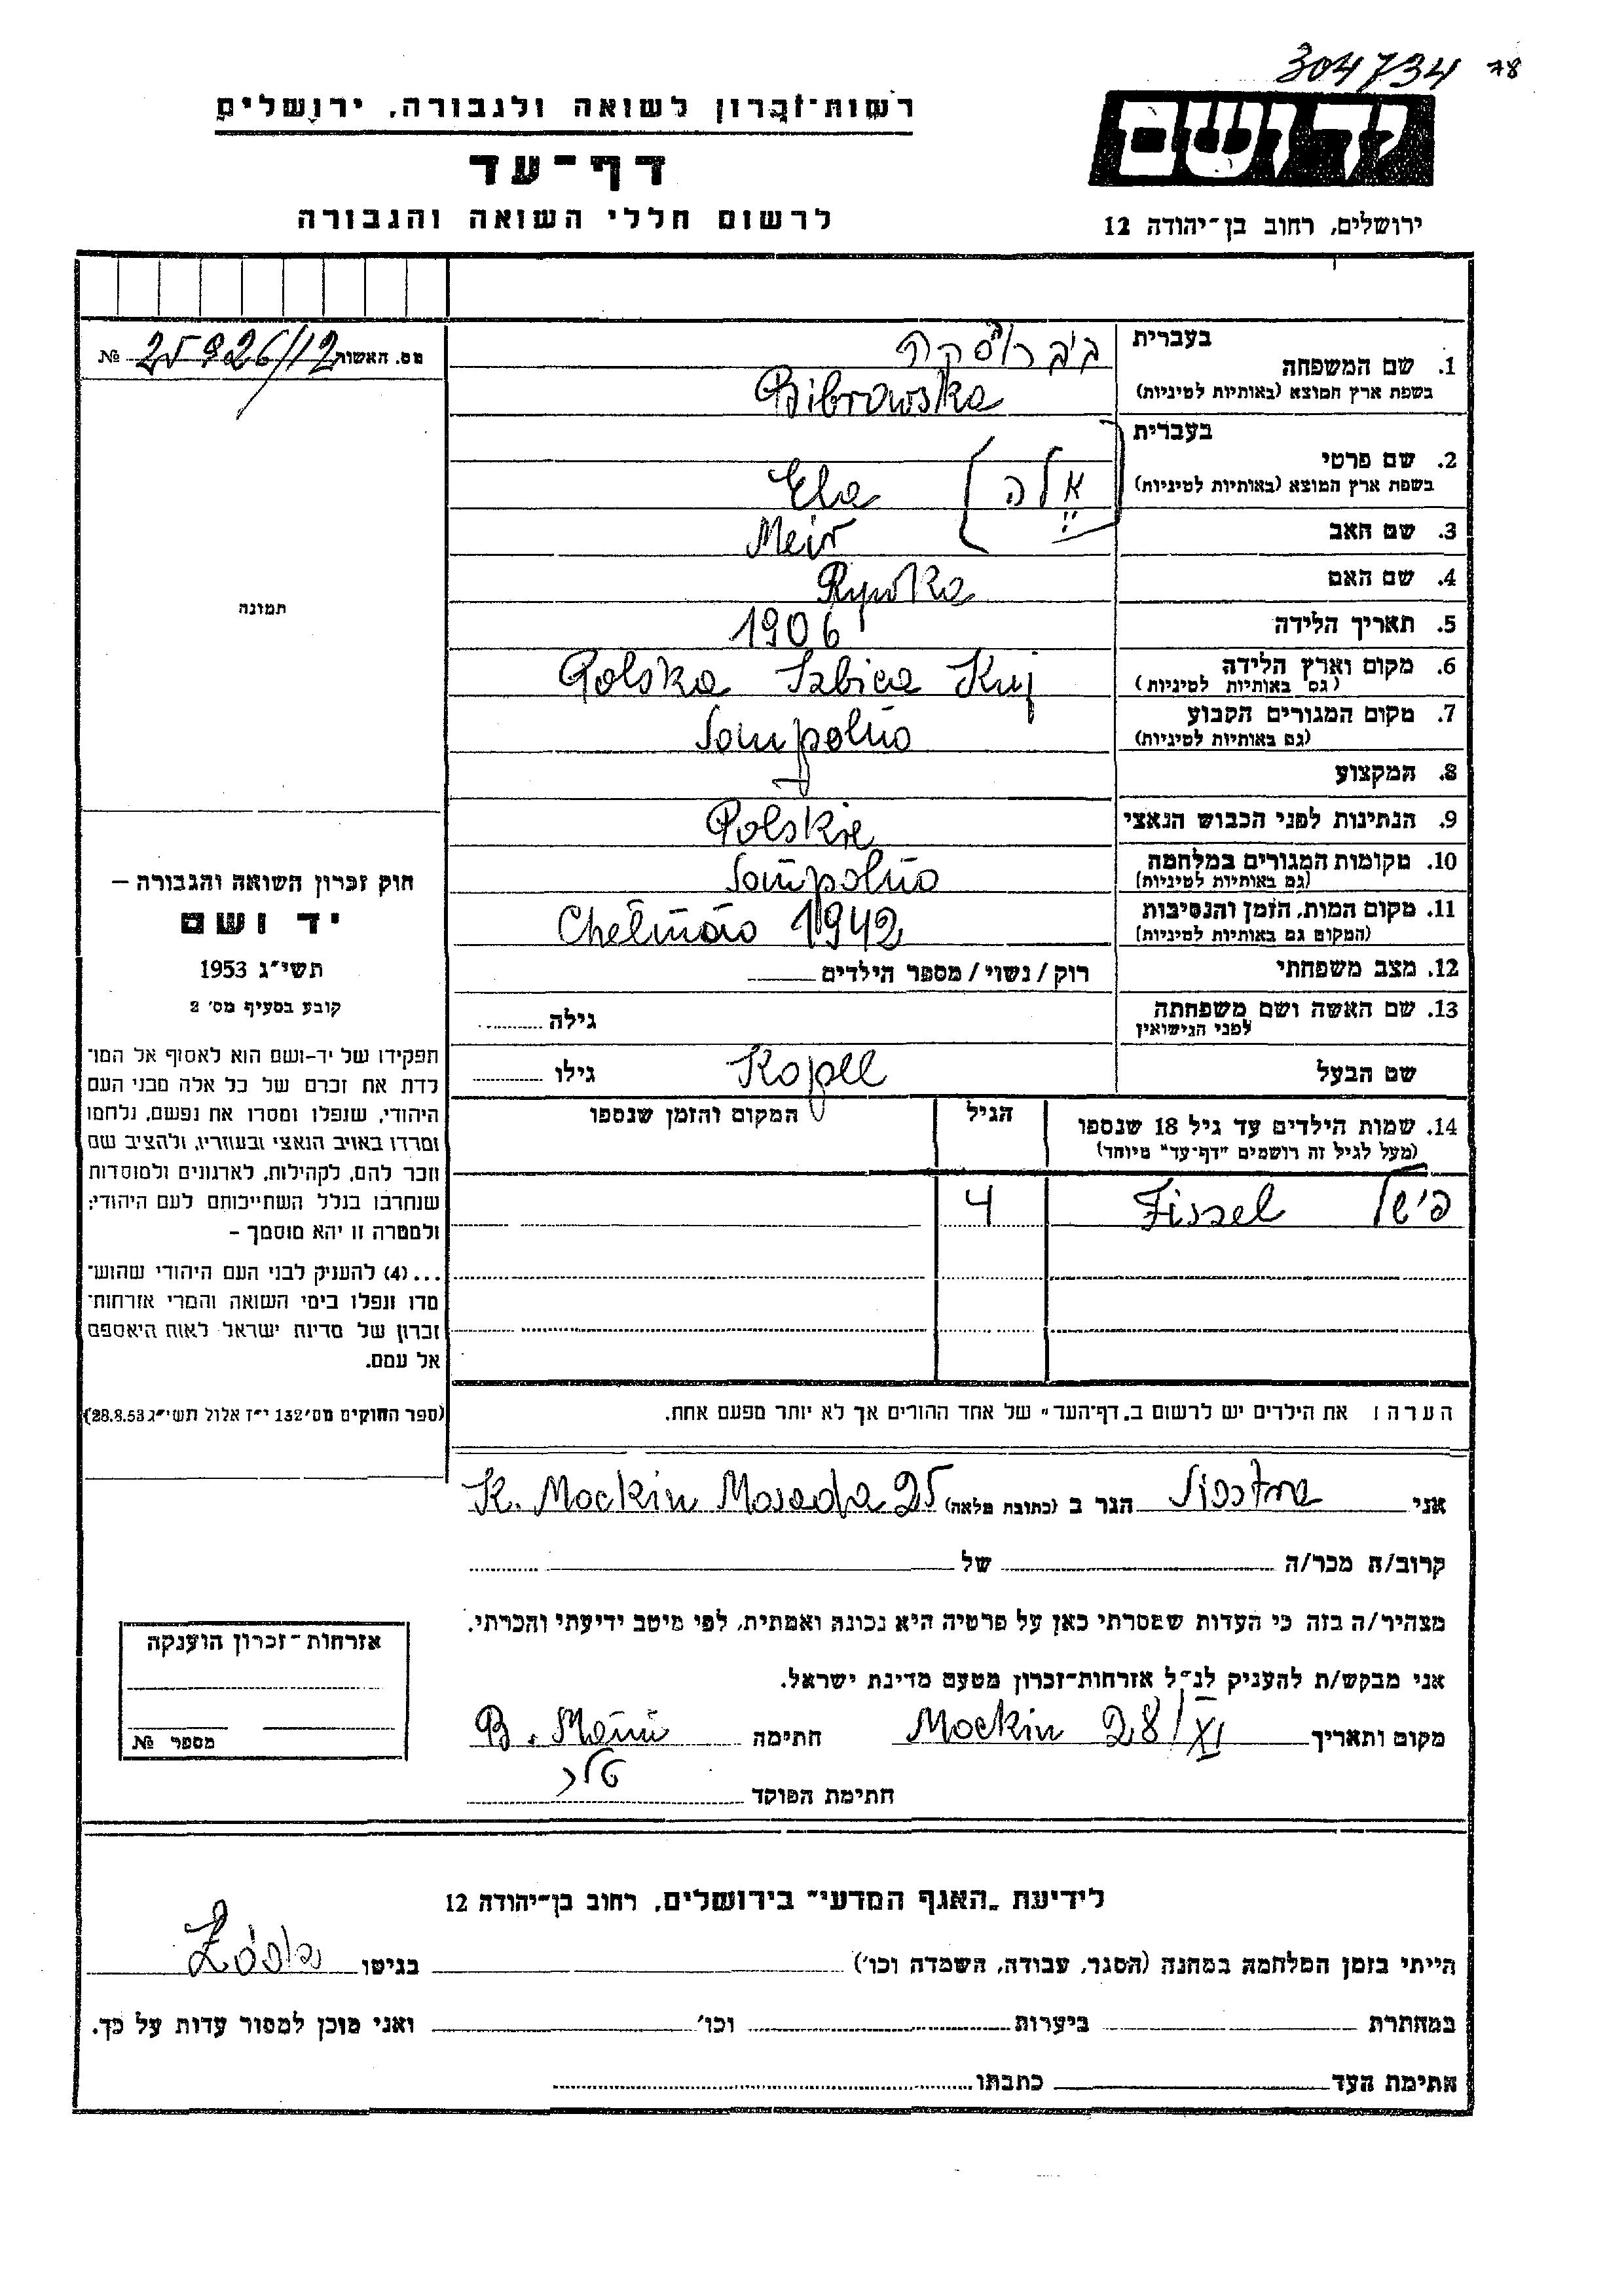 304734 78
יד ושם
ירושלים, רחוב בן־יהודה 12
רשות־זכרון לשואה ולגבורה, ירושלים
דף־עד
לרשום חללי השואה והגבורה
מס. האשות 25926/12 №
תמונה
חוק זכרון השואה והגבורה –
יד ושם
תשי״ג 1953
קובע בסעיף מס׳ 2
תפקידו של יד-ושם הוא לאסוף אל המו־
לדת את זכרם של כל אלה מבני העם
היהודי, שנפלו ומסרו את נפשם, נלחמו
ומרדו באויב הנאצי ובעוזריו, ולהציב שם
וזכר להם, לקהילות, לארגונים ולמוסדות
שנחרבו בגלל השתייכותם לעם היהודי;
ולמטרה זו יהא מוסמך –
...(4) להעניק לבני העם היהודי שהוש־
מדו ונפלו בימי השואה והמרי אזרחות־
זכרון של מדינת ישראל לאות היאספם
אל עמם.
(ספר החוקים מס׳ 132 י״ז אלול תשי״ג 28.8.53)
1. שם המשפחה
בעברית ביברוסקה
בשפת ארץ המוצא (באותיות לטיניות) Bibrowska
2. שם פרטי
בעברית [אלה]
בשפת ארץ המוצא (באותיות לטיניות) Ela
3. שם האב Meir
4. שם האם Rywka
5. תאריך הלידה 1906
6. מקום וארץ הלידה Polska Izbica Kuj
(גם באותיות לטיניות)
7. מקום המגורים הקבוע Sompolno
(גם באותיות לטיניות)
8. המקצוע
9. הנתינות לפני הכבוש הנאצי Polskie
10. מקומות המגורים במלחמה Sompolno
(גם באותיות לטיניות)
11. מקום המות, הזמן והנסיבות Chełmno 1942
(המקום גם באותיות לטיניות)
12. מצב משפחתי רוק/נשוי/מספר הילדים
13. שם האשה ושם משפחתה גילה
לפני הנישואין
שם הבעל Kopel גילו
14. שמות הילדים עד גיל 18 שנספו הגיל המקום והזמן שנספו
(מעל לגיל זה רושמים "דף־עד" מיוחד)
פישל Fissel 4
הערה: את הילדים יש לרשום ב„דף־העד״ של אחד ההורים אך לא יותר מפעם אחת.
אני Siostra הגר ב (כתובת מלאה) K. Mockin Masada 25
קרוב/ה מכר/ה של
מצהיר/ה בזה כי העדות שמסרתי כאן על פרטיה היא נכונה ואמתית, לפי מיטב ידיעתי והכרתי.
אני מבקש/ת להעניק לנ״ל אזרחות־זכרון מטעם מדינת ישראל.
מקום ותאריך Mockin 28/XI חתימה
חתימת הפוקד
אזרחות־זכרון הוענקה
מספר №
לידיעת „האגף המדעי״ בירושלים, רחוב בן־יהודה 12
הייתי בזמן המלחמה במחנה (הסגר, עבודה, השמדה וכו׳) בגיטו
במחתרת ביערות וכו׳ ואני מוכן למסור עדות על כך.
חתימת העד כתבתו